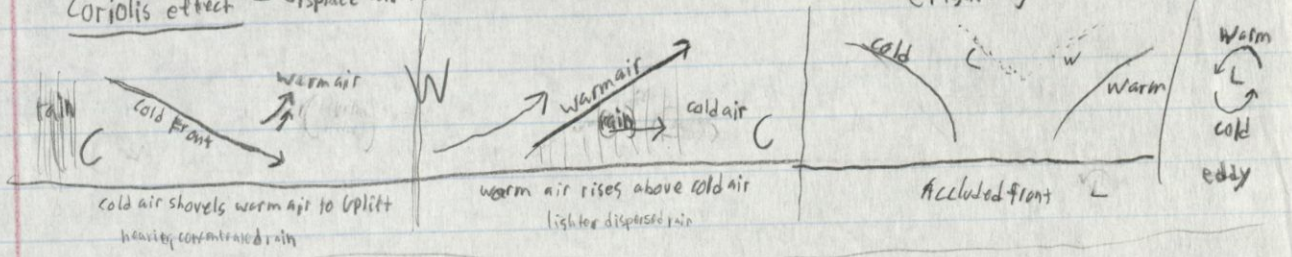 Coriolis effect
rain
C
cold front
warm air
cold air shovels warm air to uplift
heavier, concentrated rain
W
warm air
rain
cold air
C
warm air rises above cold air
lighter dispersed rain
cold
C
W
warm
Accluded front
L
warm
L
cold
eddy